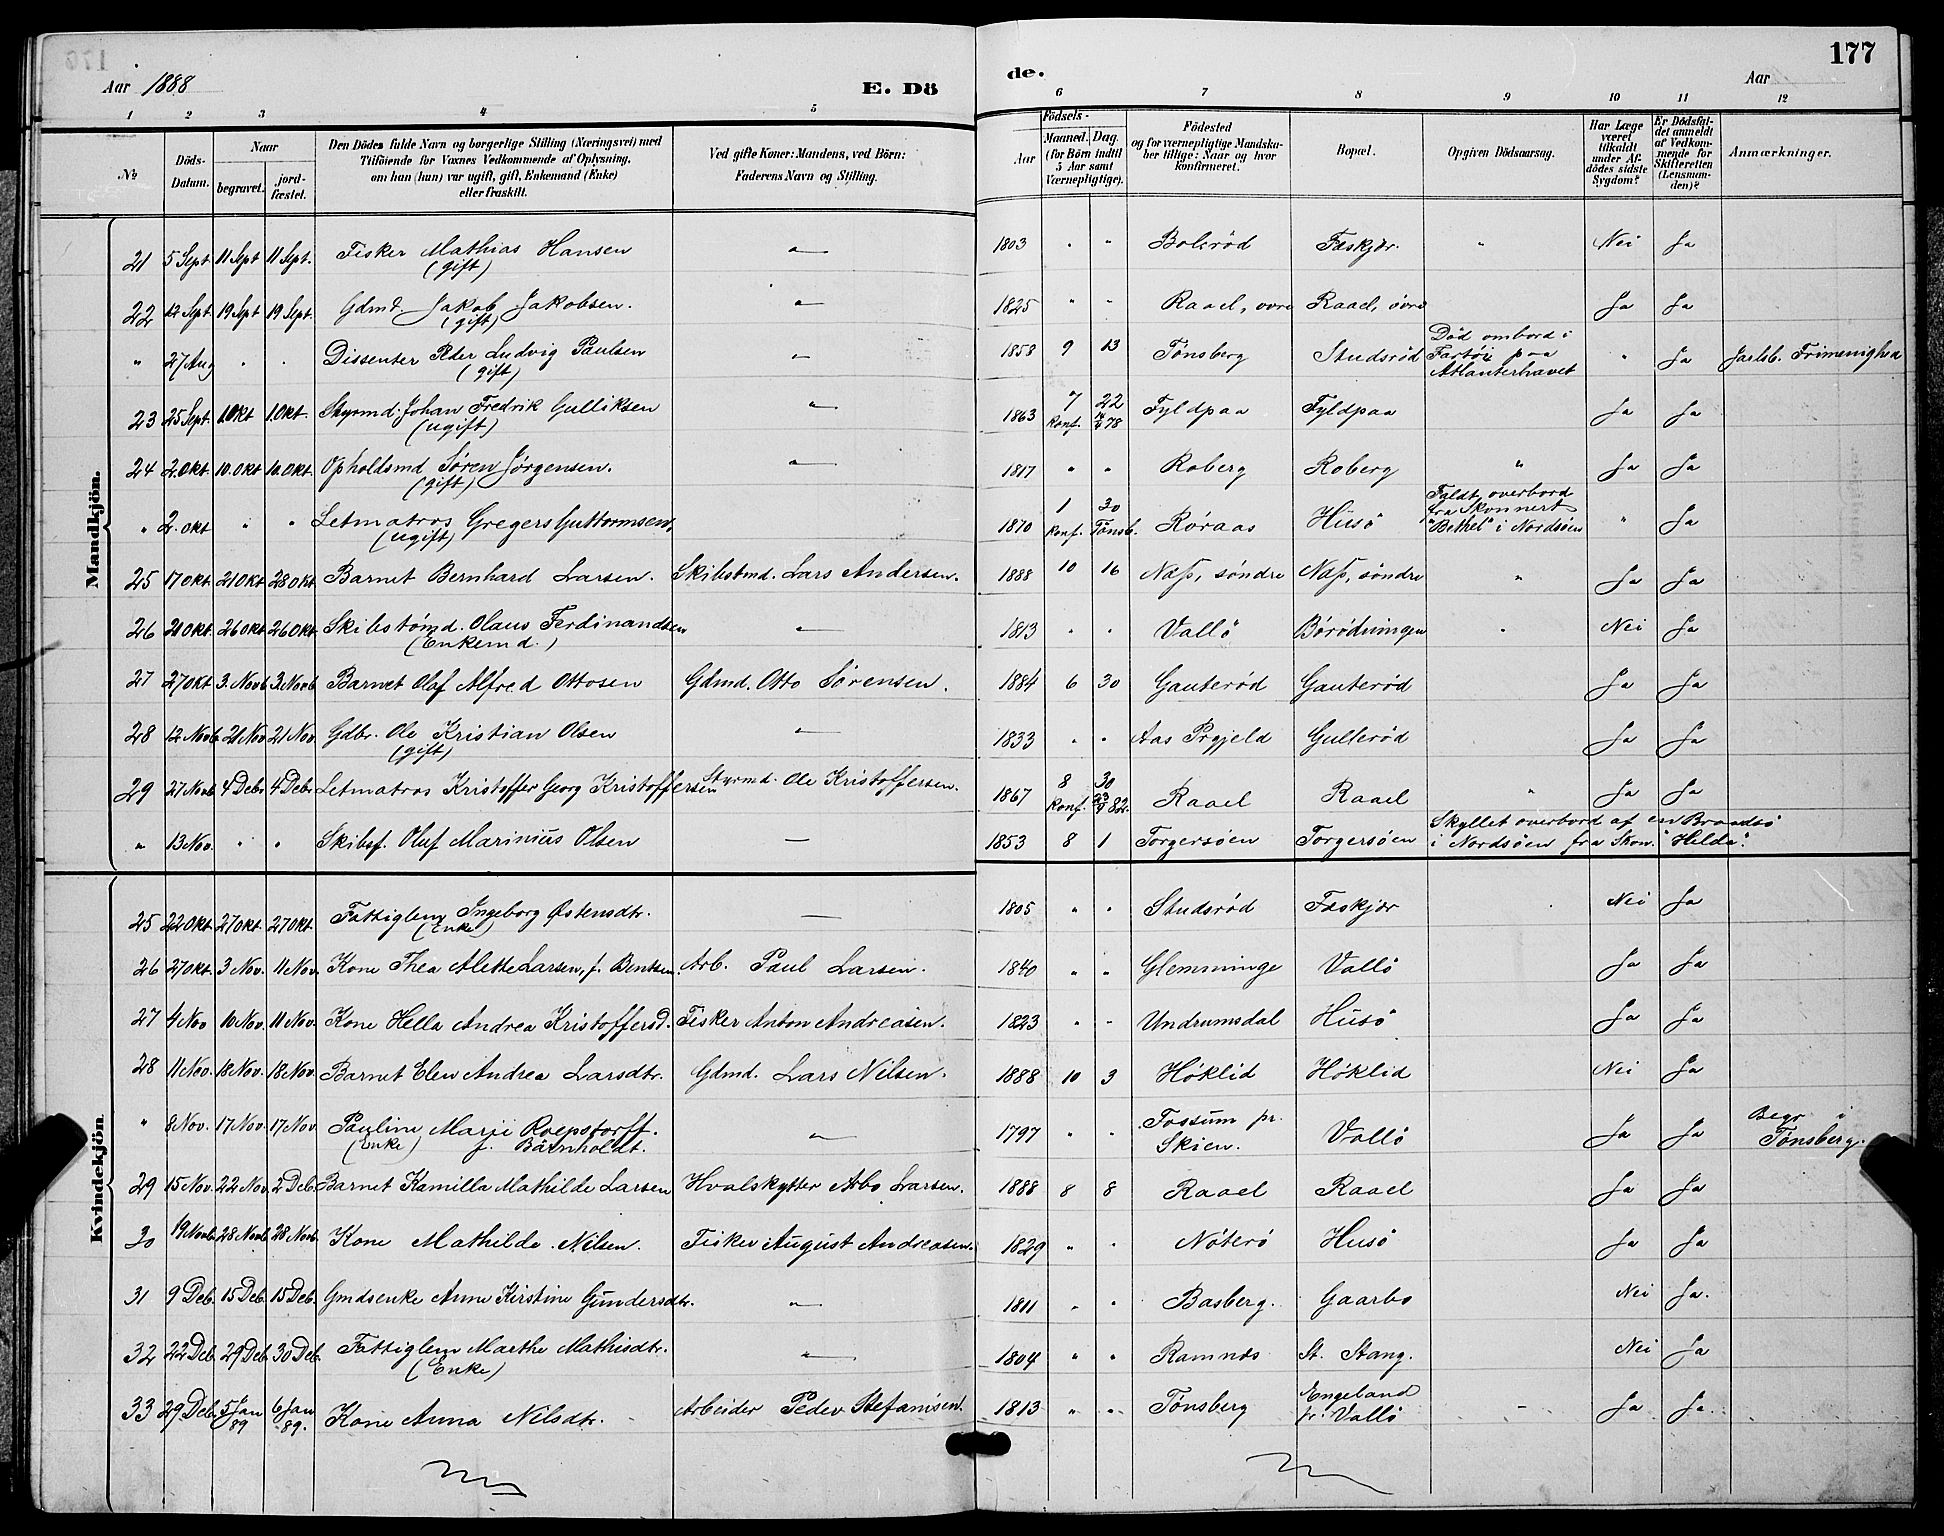 176
177
Aar 1888 E. Dö de. Aar
1 2 3 4 5 6 7 8 9 10 11 12
No Döds-Datum. Naar begravet. jord-fæstet. Den Dödes fulde Navn og borgerlige Stilling (Næringsvei) med Tilföiende for Voxnes Vedkommende af Oplysning, om han (hun) var ugift, gift, Enkemand (Enke) eller fraskilt. Ved gifte Koner: Mandens, ved Börn: Faderens Navn og Stilling. Födsels- Aar Maaned. Dag. (for Börn indtil 5 Aar samt Værnepligtige). Födested og for værnepligtige Mandska-ber tillige: Naar og hvor konfirmeret. Bopæl. Opgiven Dödsaarsag. Har Læge været tilkaldt under Af-dödes sidste Sygdom? Er Dödsfal-det anmeldt af Vedkom-mende for Skifteretten (Lensman-den)? Anmærkninger.
Mandkjön.
21 5 Sept 11 Sept 11 Sept. Fisker Mathias Hansen (gift) — 1803 " " Bolerød Fæskjær. " Nei Ja
22 12 Sept. 19 Sept 19 Sept. Gdmd. Jakob Jakobsen. (gift) — 1825 " " Raael, øvre Raael, øvre Ja Ja
" 27 Aug " " Dissenter Peder Ludvig Paulsen (gift) — 1858 9 13 Tønsberg Studsrød Død ombord i Fartøi paa Atlanterhavet " Ja Jarlsb. Frimenighed
23 25 Sept. 1 Okt 1. Okt. Styrmd. Johan Fredrik Gulliksen (ugift) — 1863 7 22 Konf. 78 Fyldpaa Fyldpaa Ja Ja
24 2. Okt 10. Okt 10. Okt. Opholdsmd Søren Jørgensen. (gift) — 1817 " " Roberg Roberg " Ja Ja
" 2. Okt " " Letmatros Gregers Guttormsen, (ugift) 1870 1 30 Konf. Tønsb. Røraas Husø Faldt overbord fra Skonnert "Bethel" i Nordsøen " Ja
25 17 Okt. 21 Okt 28 Okt Barnet Bernhard Larsen. Skibstmd. Lars Andersen. 1888 10 16 Næss, søndre Næss, søndre " Ja Ja
26 21 Okt. 26 Okt 26 Okt. Skibstømd. Olaus Ferdinandsen (Enkemd.) — 1813 " " Vallø Børødningen " Nei Ja
27 27 Okt 3. Novb 3. Novb Barnet Olaf Alfred Ottosen Gdmd. Otto Sørensen. 1884 6 30 Gauterød Gauterød Ja Ja
28 12 Novb. 21 Nov 21 Nov. Gdbr. Ole Kristian Olsen (gift) — 1833 " " Aas Prgjeld Gullerød Ja Ja
29 27 Novb 4 Debr 4 Debr Letmatros Kristoffer Georg Kristoffersen Styrmd. Ole Kristoffersen. 1867 8 30 Konf. 82. Raael Raael " Ja Ja
" 13 Nov. " " Skibsf. Oluf Marinius Olsen — 1853 8 1 Torgersøen Torgersøen Skyllet overbord af en Brandsø i Nordsøen fra Skon. "Hilda".
Kvindekjön
25 22 Okt. 27 Okt. 27 Okt. Fattiglem Ingeborg Østensdtr. (Enke) — 1805 " " Studsrød Fæskjær Nei Ja
26 27 Okt. 3 Nov. 11 Nov. Kone Thea Alette Larsen, f. Bentsen. Arb. Paul Larsen. 1840 " " Glemminge Vallø Ja Ja
27 4 Nov 10 Nov. 11 Nov. Kone Hella Andrea Kristoffersd. Fisker Anton Andreasen. 1823 " " Undrumsdal Husø Ja Ja
28 11 Nov. 18 Nov. 18 Nov. Barnet Elen Andrea Larsdtr. Gdmd. Lars Nilsen. 1888 10 3 Høklid Høklid Nei Ja
" 8 Nov. 17 Nov. 17 Nov. Pauline Marie Roepstorff. (Enke) f. Bärnholdt. — 1797 " " Fossum pr. Skien. Vallø Ja Ja Begr i Tønsberg.
29 15 Nov. 22 Nov. 2 Deb. Barnet Kamilla Mathilde Larsen Hvalskytter Arbo Larsen. 1888 8 8 Raael Raael Ja Ja
30 19 Novb. 28 Novb 28 Novb. Kone Mathilde Nilsen. Fisker August Andreasen. 1829 " " Nøterø Husø Ja Ja
31 9 Deb. 15 Deb. 15 Deb. Gmdsenke Anne Kirstine Gundersdtr. — 1811 " " Basberg. Gaarbo Nei Ja.
32 22 Deb. 29 Deb 30 Deb. Fattiglem Marthe Mathisdtr. (Enke) — 1804 " " Ramnæs St. Stang. Nei Ja
33 29 Deb. 5 Jan 89 6 Jan 89. Kone Anna Nilsdtr. Arbeider Peder Stefansen. 1813 " " Tønsberg Engeland pr. Vallø Ja Ja.